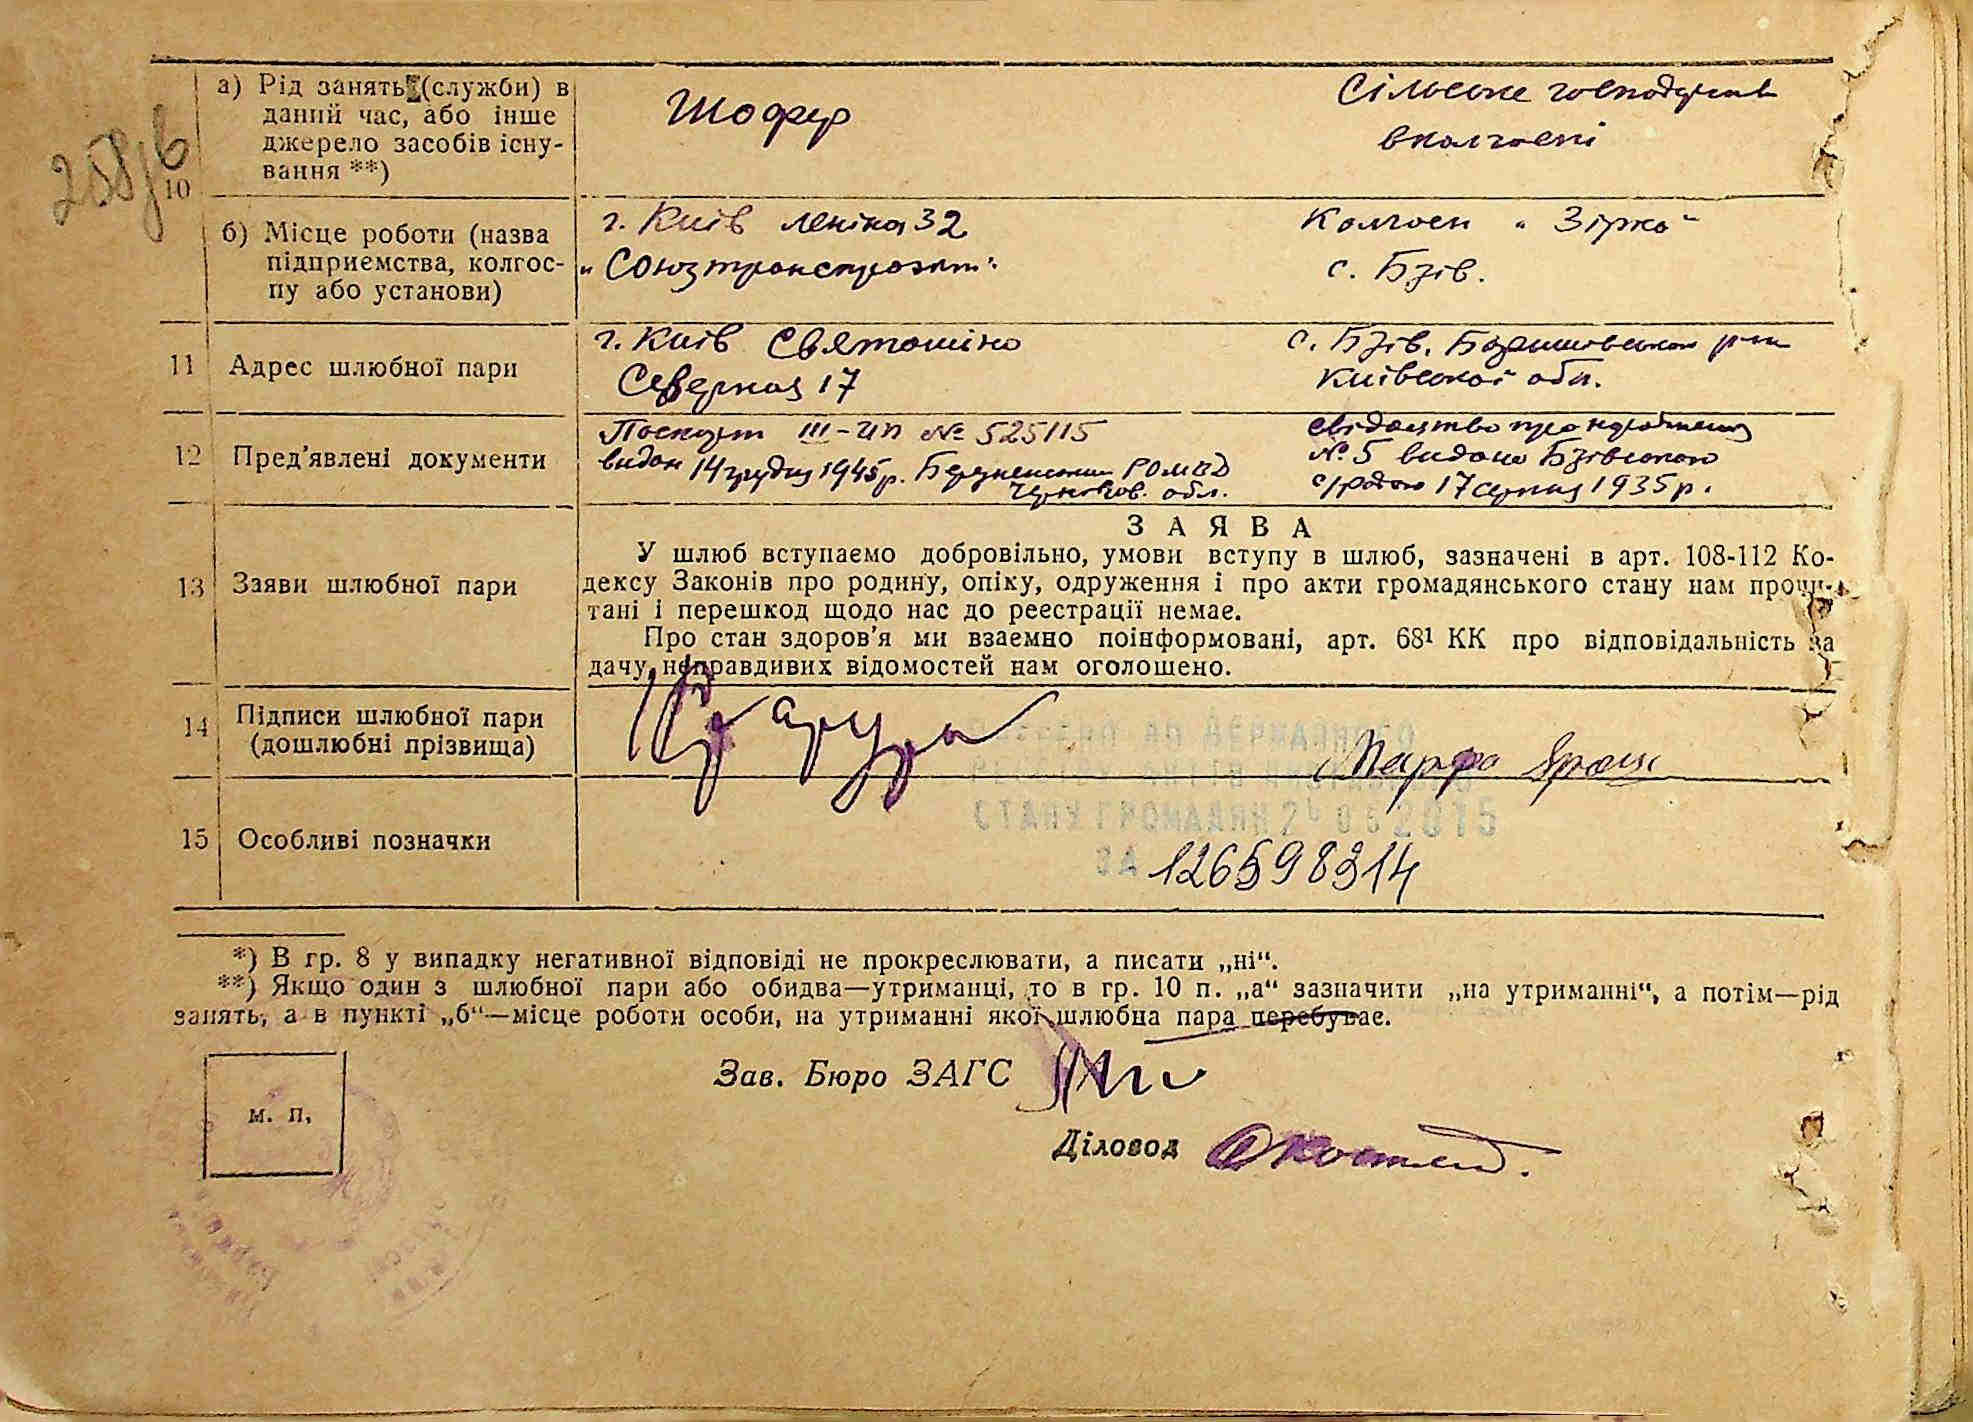 258зв
10
а) Рід занять (служби) в
даний час, або інше
джерело засобів існу-
вання **)
Шофер
Сільське господарство
в колгоспі
б) Місце роботи (назва
підприємства, колгос-
пу або установи)
г. Київ Леніна 32
„Союзтранспроэкт"
Колгосп „Зірка"
с. Бзів.
11
Адрес шлюбної пари
г. Київ Святошіно
Северная 17
с. Бзів. Баришівського р-ну
Київської обл.
12
Пред'явлені документи
Паспорт III-ИП № 525115
видан 14 грудня 1945р. РОМВД
обл.
свідоцтво про народження
№ 5 видано Бзівською
с/радою 17 серпня 1935 р.
13
Заяви шлюбної пари
ЗАЯВА
У шлюб вступаємо добровільно, умови вступу в шлюб, зазначені в арт. 108-112 Ко-
дексу Законів про родину, опіку, одруження і про акти громадянського стану нам прочи-
тані і перешкод щодо нас до реестрації немає.
Про стан здоров'я ми взаємно поінформовані, арт. 68¹ КК про відповідальність за
дачу неправдивих відомостей нам оголошено.
14
Підписи шлюбної пари
(дошлюбні прізвища)
ДО ДЕРЖАВНОГО
РЕЄСТРУ АКТІВ ЦИВІЛЬНОГО
СТАНУ ГРОМАДЯН 2015
ЗА 126598314
15
Особливі позначки
*) В гр. 8 у випадку негативної відповіді не прокреслювати, а писати „ні“.
**) Якщо один з шлюбної пари або обидва—утриманці, то в гр. 10 п. „а“ зазначити „на утриманні“, а потім—рід
занять, а в пункті „б“—місце роботи особи, на утриманні якої шлюбна пара перебуває.
Зав. Бюро ЗАГС
м. п.
Діловод